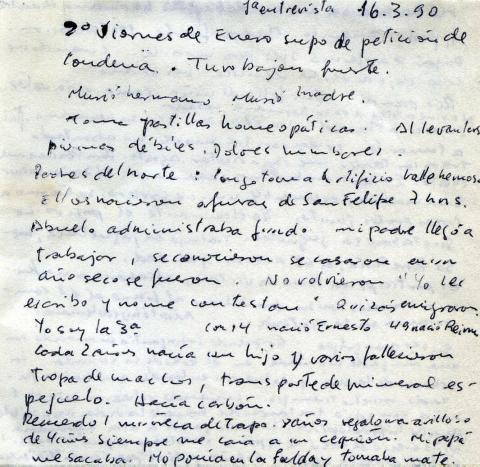 1a entrevista 16.3.90
2º Viernes de Enero supo de petición de
condena. Tuvo bajón fuerte.
Murió hermano Murió madre.
Toma pastillas homeopáticas. Al levantarse
piernas débiles. Dolores lumbares.
Padres del norte:
Ellos nacieron afueras de San Felipe 7 hnos.
Abuelo administraba fundo mi padre llegó a
trabajar, se conocieron se casaron en un
año seco se fueron. No volvieron "Yo les
escribo y no me contestan" Quizás emigraron
Yo soy la 3a nació Ernesto
cada 2 años nacía un hijo y varios fallecieron
tropa de machos, transporte de mineral es-
pejuelo. Hacía carbón.
Recuerdo 1 muñeca de trapo.
de 4 años siempre me caía a un Mi papá
me sacaba. Me ponía en la falda y tomaba mate.